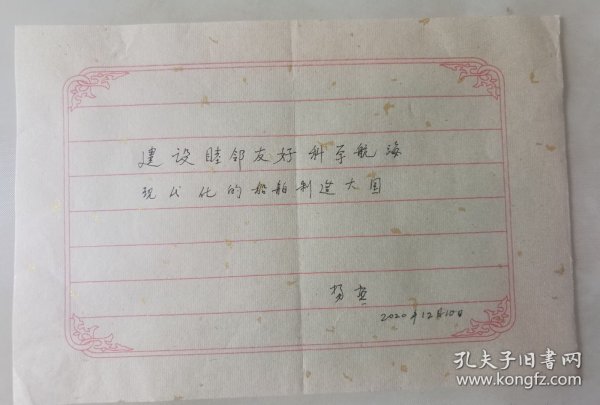 建设睦邻友好科学航海
现代化的船舶制造大国
杨英
2020年12月10日
孔夫子旧书网
www.kongfz.com